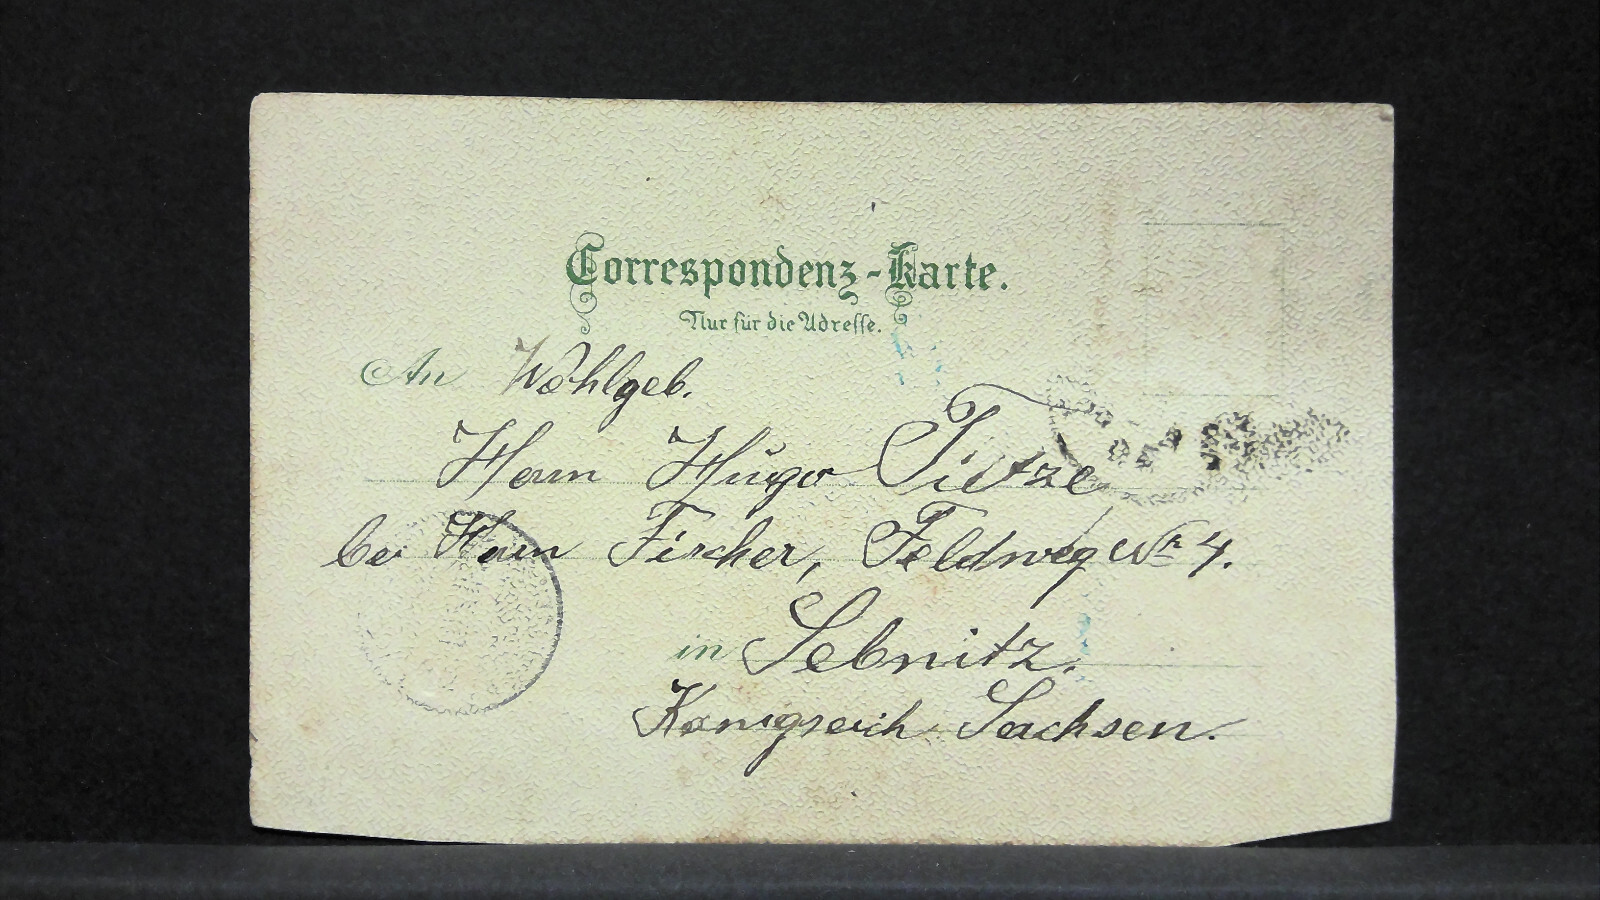 Correspondenz-Karte.
Nur für die Adresse.
An Wohlgeb.
Herrn Hugo Tietze
bei Herrn Fischer, Feldweg Nr 4.
in Sebnitz.
Königreich Sachsen.